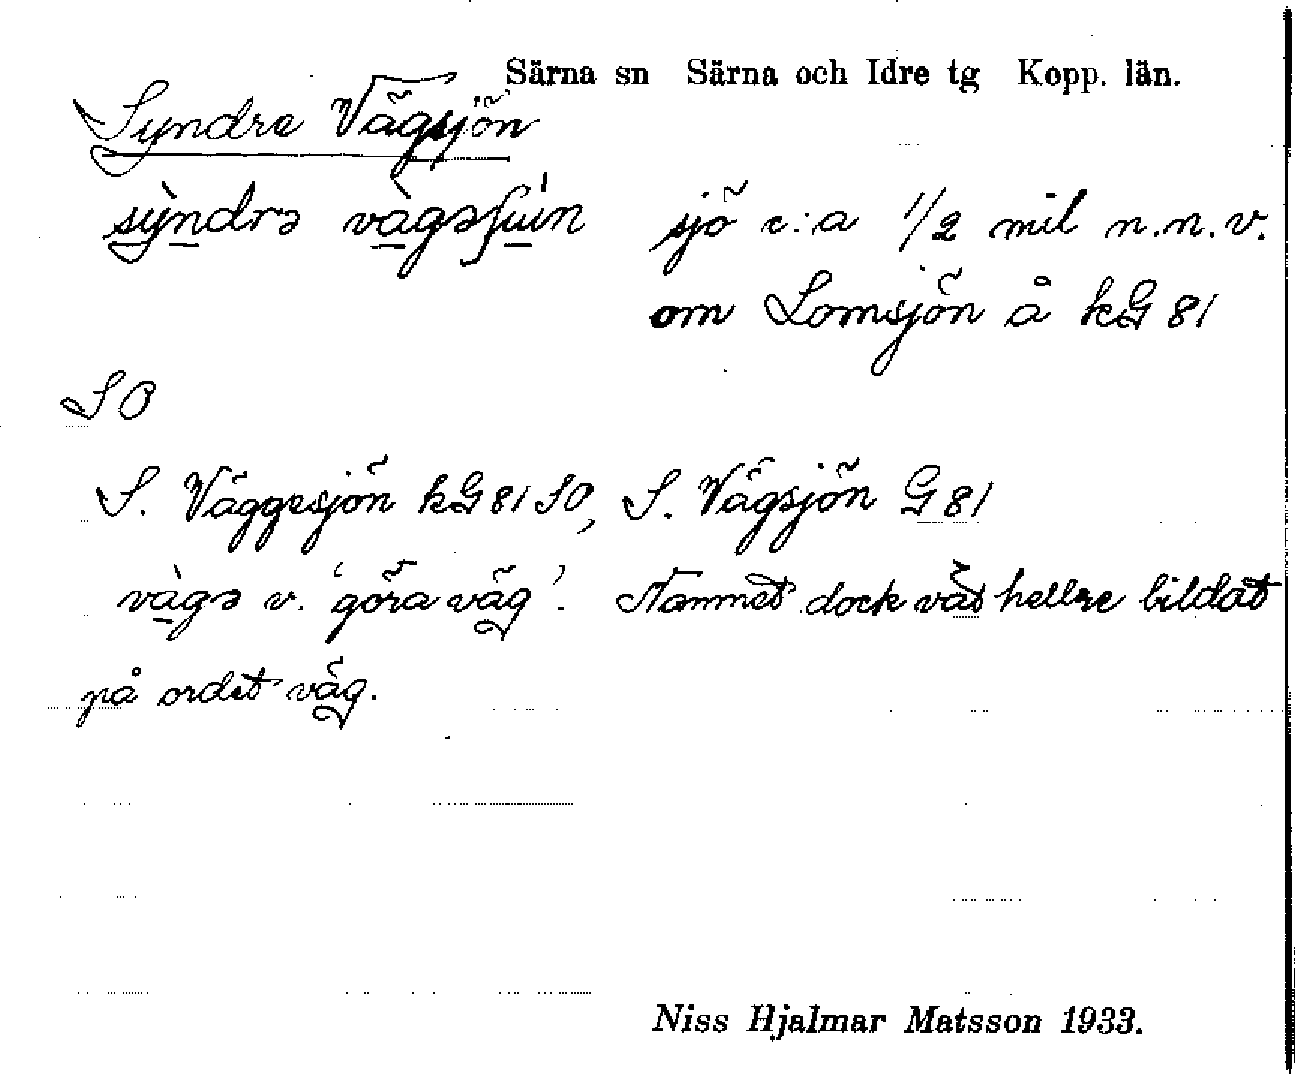 Särna sn Särna och Idre tg Kopp. län.
Syndre Vägsjön
sỳndrə vàgəʃuín sjö c:a 1/2 mil n.n.v.
om Lomsjön å kG 81
SO
S. Väggesjön kG 81 SO, S. Vägsjön G 81
vàgə v. 'göra väg'. Namnet dock väl hellre bildat
på ordet väg.
Niss Hjalmar Matsson 1933.